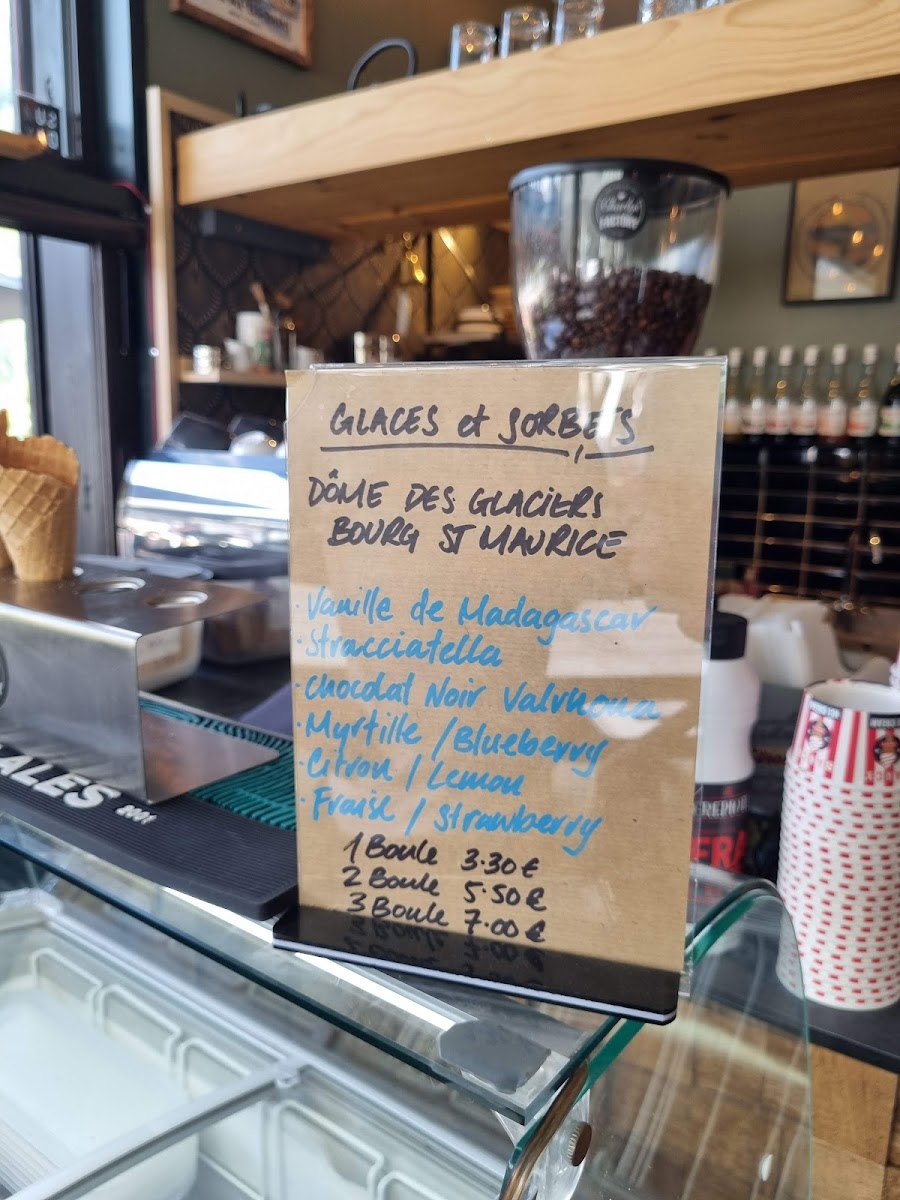 GLACES et SORBETS
DÔME DES GLACIERS
BOURG ST MAURICE
· Vanille de Madagascar
· Stracciatella
· Chocolat Noir Valrhona
· Myrtille / Blueberry
· Citron / Lemon
· Fraise / Strawberry
1 Boule 3.30 €
2 Boule 5.50 €
3 Boule 7.00 €
ALES 2001